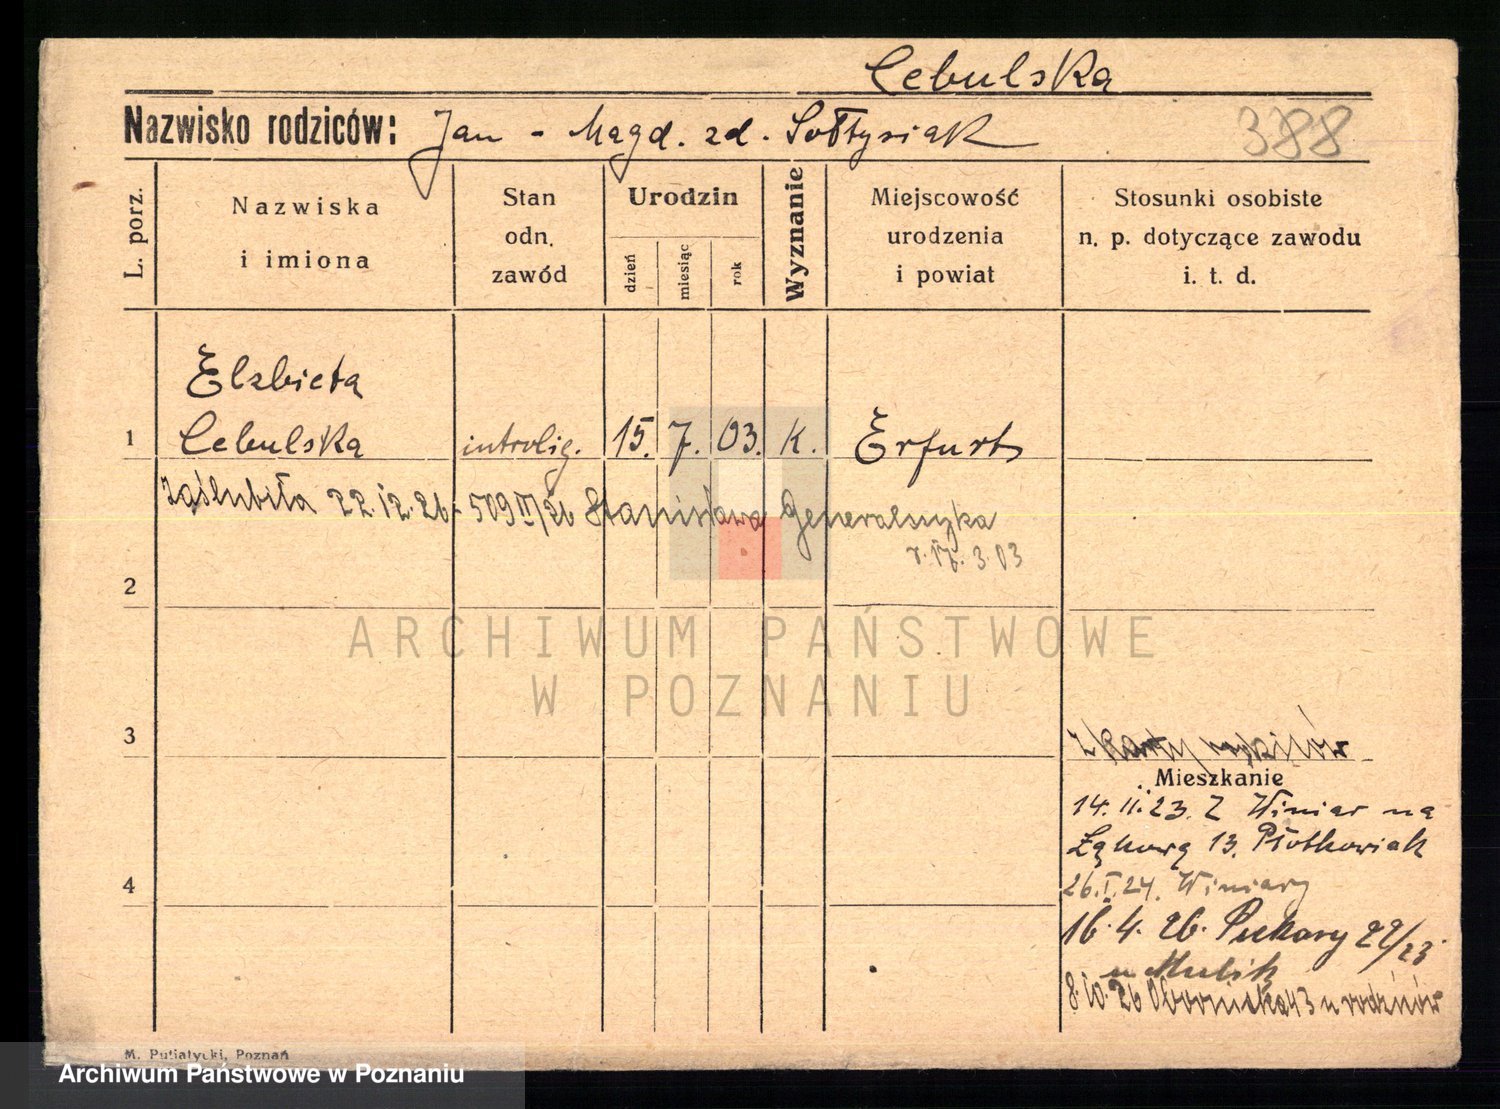 Cebulska
Nazwisko rodziców: Jan - Magd. zd. Sołtysiak
3788
L. porz.
Nazwiska
i imiona
Stan
odn.
zawód
Urodzin
dzień
miesiąc
rok
Wyznanie
Miejscowość
urodzenia
i powiat
Stosunki osobiste
n. p. dotyczące zawodu
i. t. d.
Elzbieta
1 Cebulska introlig. 15. 7. 03. K. Erfurt
Zaślubiła 22.12.26 - 509 II/26 Stanisława Generalczyka
r. 17. 3. 03
2
ARCHIWUM PAŃSTWOWE
W POZNANIU
3
z karty
Mieszkanie
14. II. 23. Z Winiar na
Łąkową 13. Piotkowiak
4
26. I. 24. Winiary
16. 4. 26. Piekary 22/23
u
8. 10. 26 Obornicka 43 u rodziców
M. Putiatycki, Poznań
Archiwum Państwowe w Poznaniu